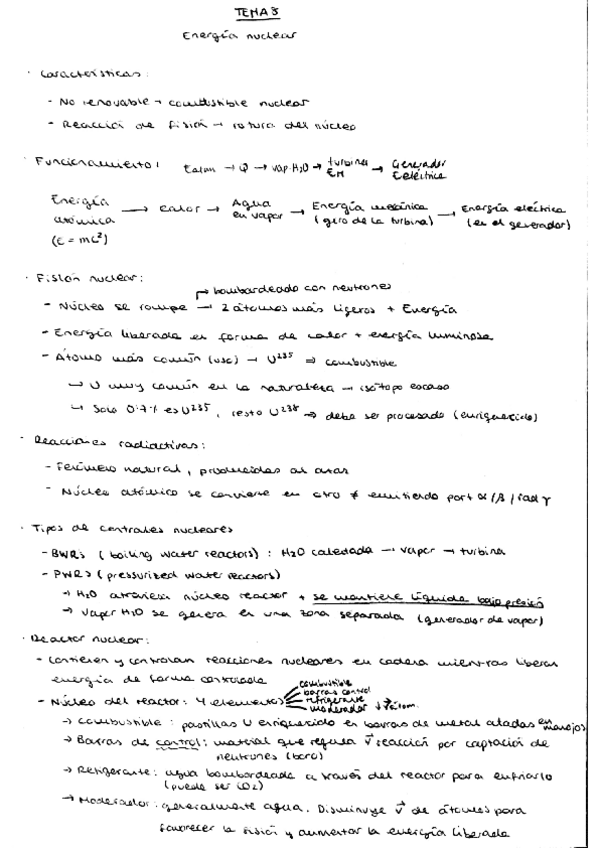 TEMA 3
Energía nuclear
· Características:
- No renovable → combustible nuclear
- Reacción de fisión → rotura del núcleo
· Funcionamiento: Calor → Q → vap. H2O → turbina EM → Generador Eeléctrica
Energía atómica (E = mc²) → calor → Agua en vapor → Energía mecánica (giro de la turbina) → Energía eléctrica (en el generador)
· Fisión nuclear:
→ bombardeado con neutrones
- Núcleo se rompe → 2 átomos más ligeros + Energía
- Energía liberada en forma de calor + energía luminosa
- Átomo más común (uso) → U235 ⇒ combustible
→ U muy común en la naturaleza → isótopo escaso
→ Solo 0'7% es U235, resto U238 ⇒ debe ser procesado (enriquecido)
· Reacciones radiactivas:
- Fenómeno natural, producidas al azar
- Núcleo atómico se convierte en otro ≠ emitiendo part α/β/rad γ
· Tipos de centrales nucleares
- BWRs (boiling water reactors): H2O calentada → vapor → turbina
- PWRs (pressurized water reactors)
→ H2O atraviesa núcleo reactor + se mantiene líquida bajo presión
→ Vapor H2O se genera en una zona separada (generador de vapor)
· Reactor nuclear:
- Contienen y controlan reacciones nucleares en cadena mientras liberan
energía de forma controlada
- Núcleo del reactor: 4 elementos combustible barras control refrigerante moderador
→ Combustible: pastillas U enriquecido en barras de metal atadas en manojos
→ Barras de control: material que regula v reacción por captación de
neutrones (boro)
→ Refrigerante: agua bombardeada a través del reactor para enfriarlo
(puede ser CO2)
→ Moderador: generalmente agua. Disminuye v de átomos para
favorecer la fisión y aumentar la energía liberada